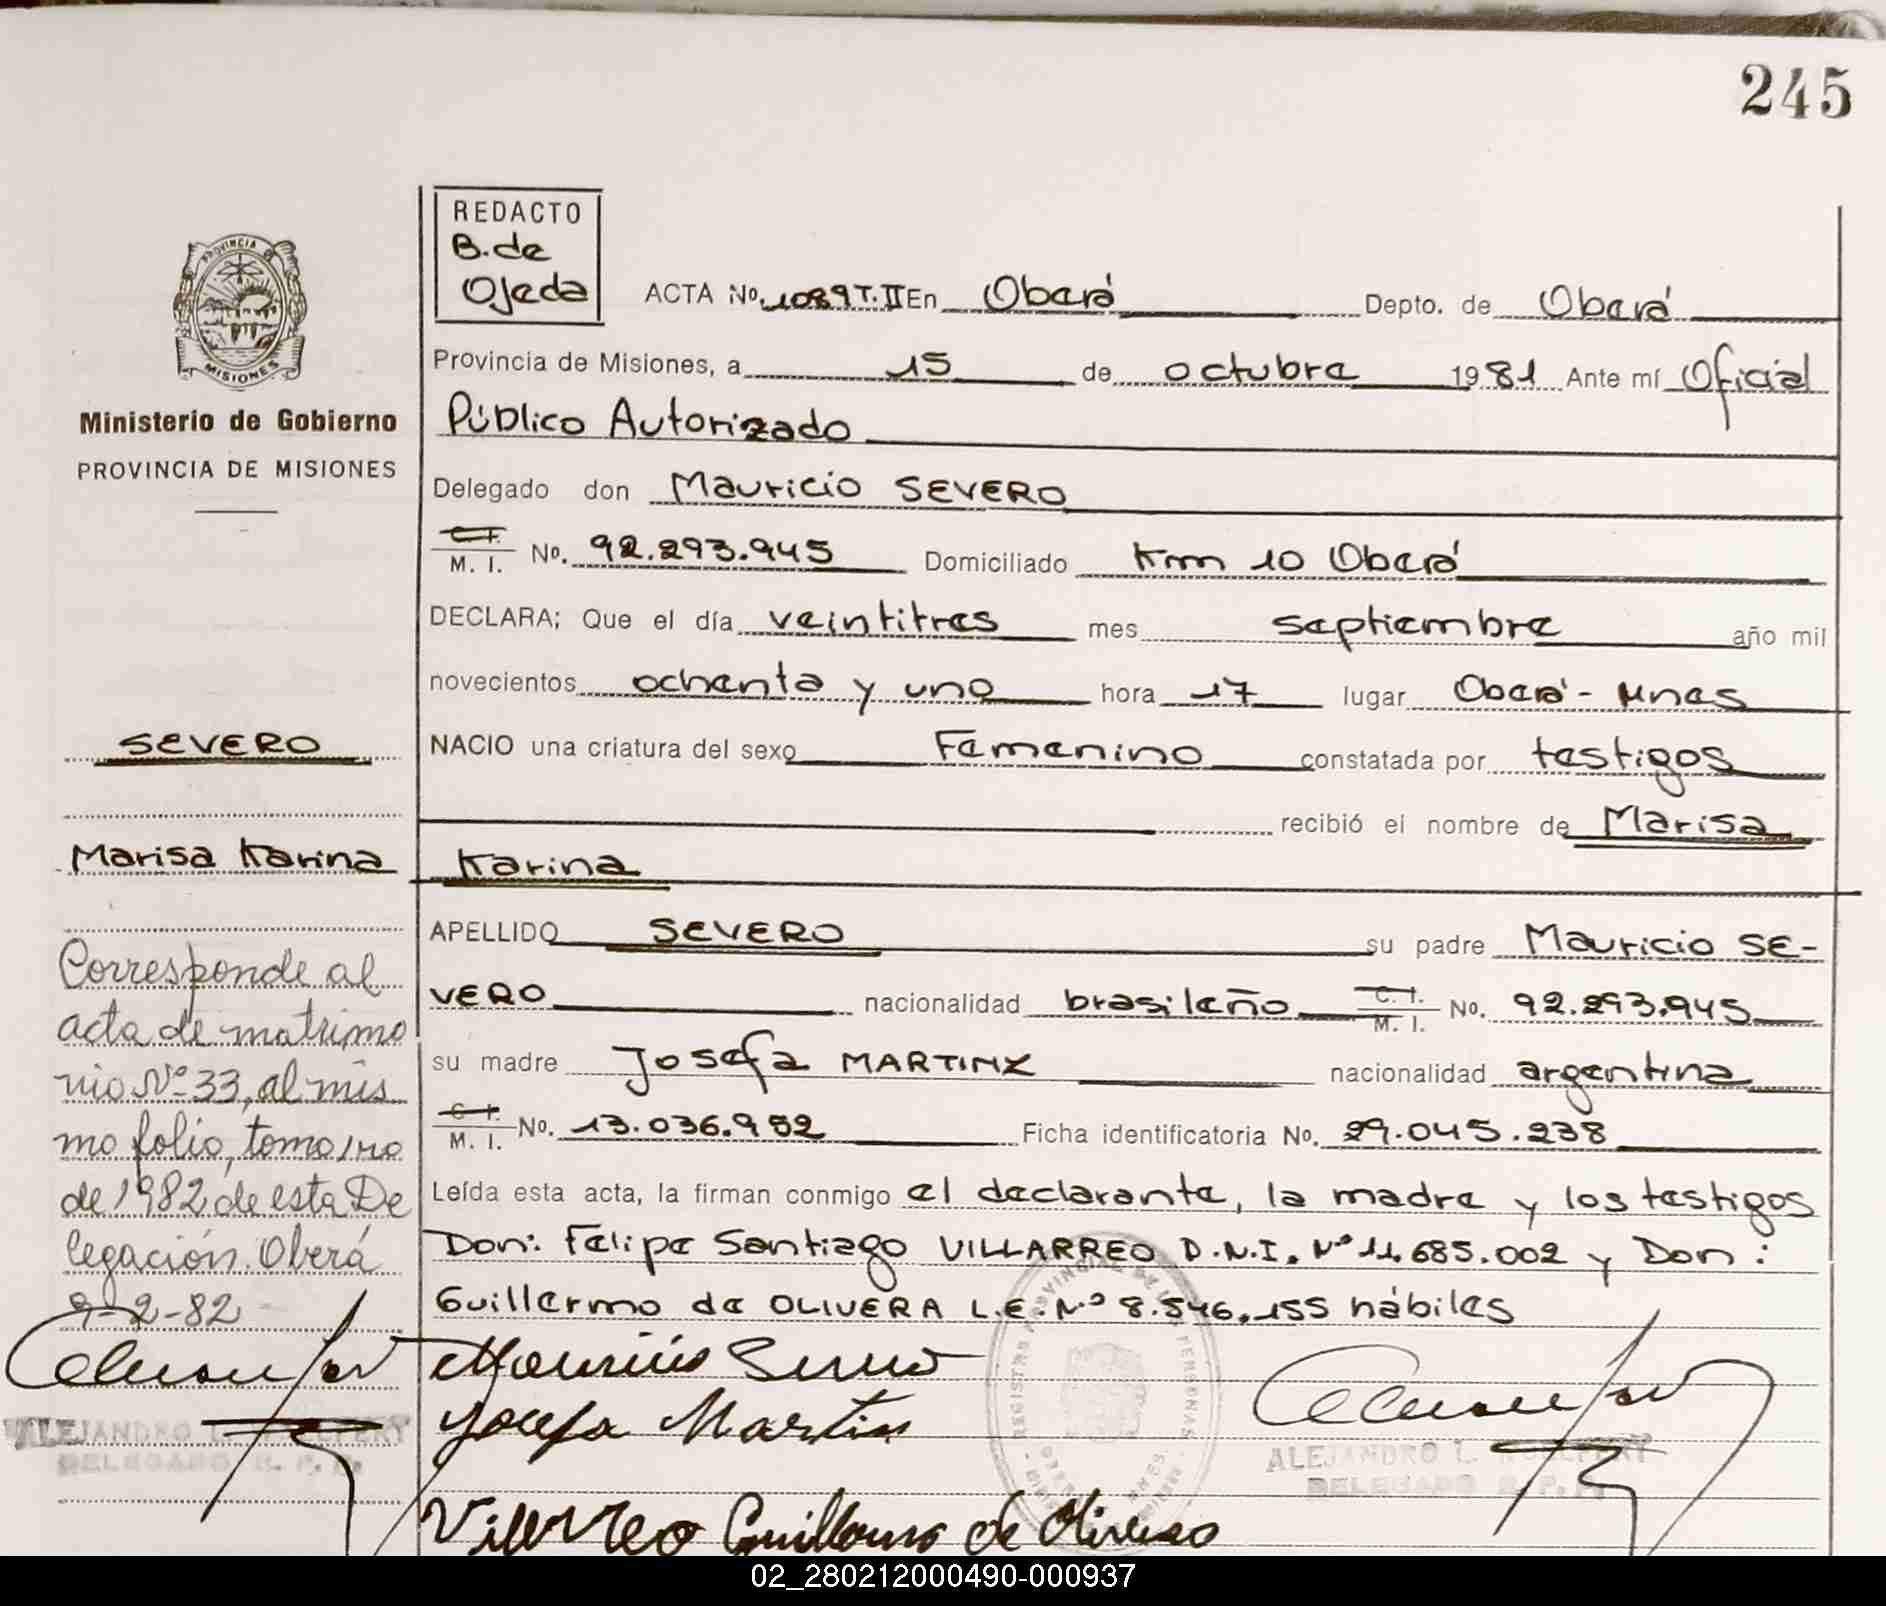 245
REDACTO
B. de
Ojeda
ACTA No. 1089 T. II En Oberá Depto. de Oberá
PROVINCIA DE
MISIONES
Provincia de Misiones, a 15 de octubre 1981 Ante mí Oficial
Ministerio de Gobierno
PROVINCIA DE MISIONES
Público Autorizado
Delegado don Mauricio SEVERO
C. I.
M. I. No. 92.293.945 Domiciliado Km 10 Oberá
DECLARA; Que el día veintitres mes septiembre año mil
novecientos ochenta y uno hora 17 lugar Oberá - Mnes
SEVERO
NACIO una criatura del sexo Femenino constatada por testigos
recibió el nombre de Marisa
Marisa Karina
Karina
APELLIDO SEVERO su padre Mauricio SE-
VERO nacionalidad brasileño C. I. M. I. No. 92.293.945
su madre Josefa MARTINZ nacionalidad argentina
C. I.
M. I. No. 13.036.952 Ficha identificatoria No. 29.045.238
Leída esta acta, la firman conmigo el declarante, la madre y los testigos
Don: Felipe Santiago VILLARREO D.N.I. Nº 11.685.002 y Don:
Guillermo de OLIVERA L.E. Nº 8.546.155 hábiles
Corresponde al
acta de matrimo
nio Nº 33, al mis
mo folio, tomo 1ro
de 1982 de esta De
legación. Oberá
9-2-82
Mauricio Severo
Josefa Martin
Villerreo Guillermo de Olivera
ALEJANDRO L.
DELEGADO R. P. P.
ALEJANDRO L.
DELEGADO R. P. P.
REGISTRO PROVINCIAL DE LAS PERSONAS
02_280212000490-000937